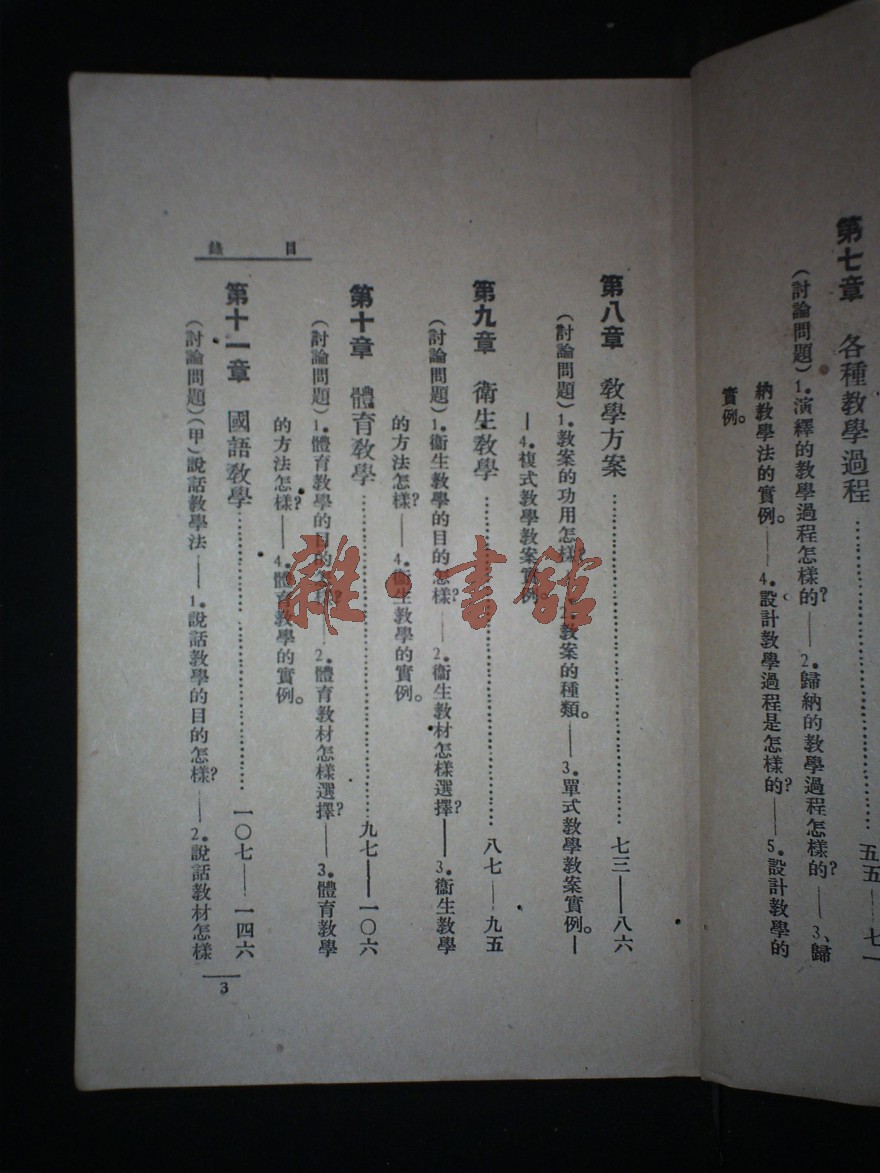 第七章　各種教學過程……五五——七一
（討論問題）1.演釋的教學過程怎樣的？——2.歸納的教學過程怎樣的？——3、歸
納教學法的實例。——4.設計教學過程是怎樣的？——5.設計教學的
實例。
第八章　教學方案……七三——八六
（討論問題）1.教案的功用怎樣？2.教案的種類。——3.單式教學教案實例。—
—4.複式教學教案實例。
第九章　衛生教學……八七——九五
（討論問題）1.衛生教學的目的怎樣？——2.衞生教材怎樣選擇？——3.衞生教學
的方法怎樣？——4.衞生教學的實例。
第十章　體育教學……九七——一〇六
（討論問題）1.體育教學的目的怎樣？——2.體育教材怎樣選擇？——3.體育教學
的方法怎樣？——4.體育教學的實例。
第十一章　國語教學……一〇七——一四六
（討論問題）（甲）說話教學法——1.說話教學的目的怎樣？——2.說話教材怎樣
目　錄
3
雜·書館